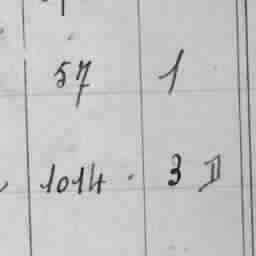 57 1
1014 · 3 D